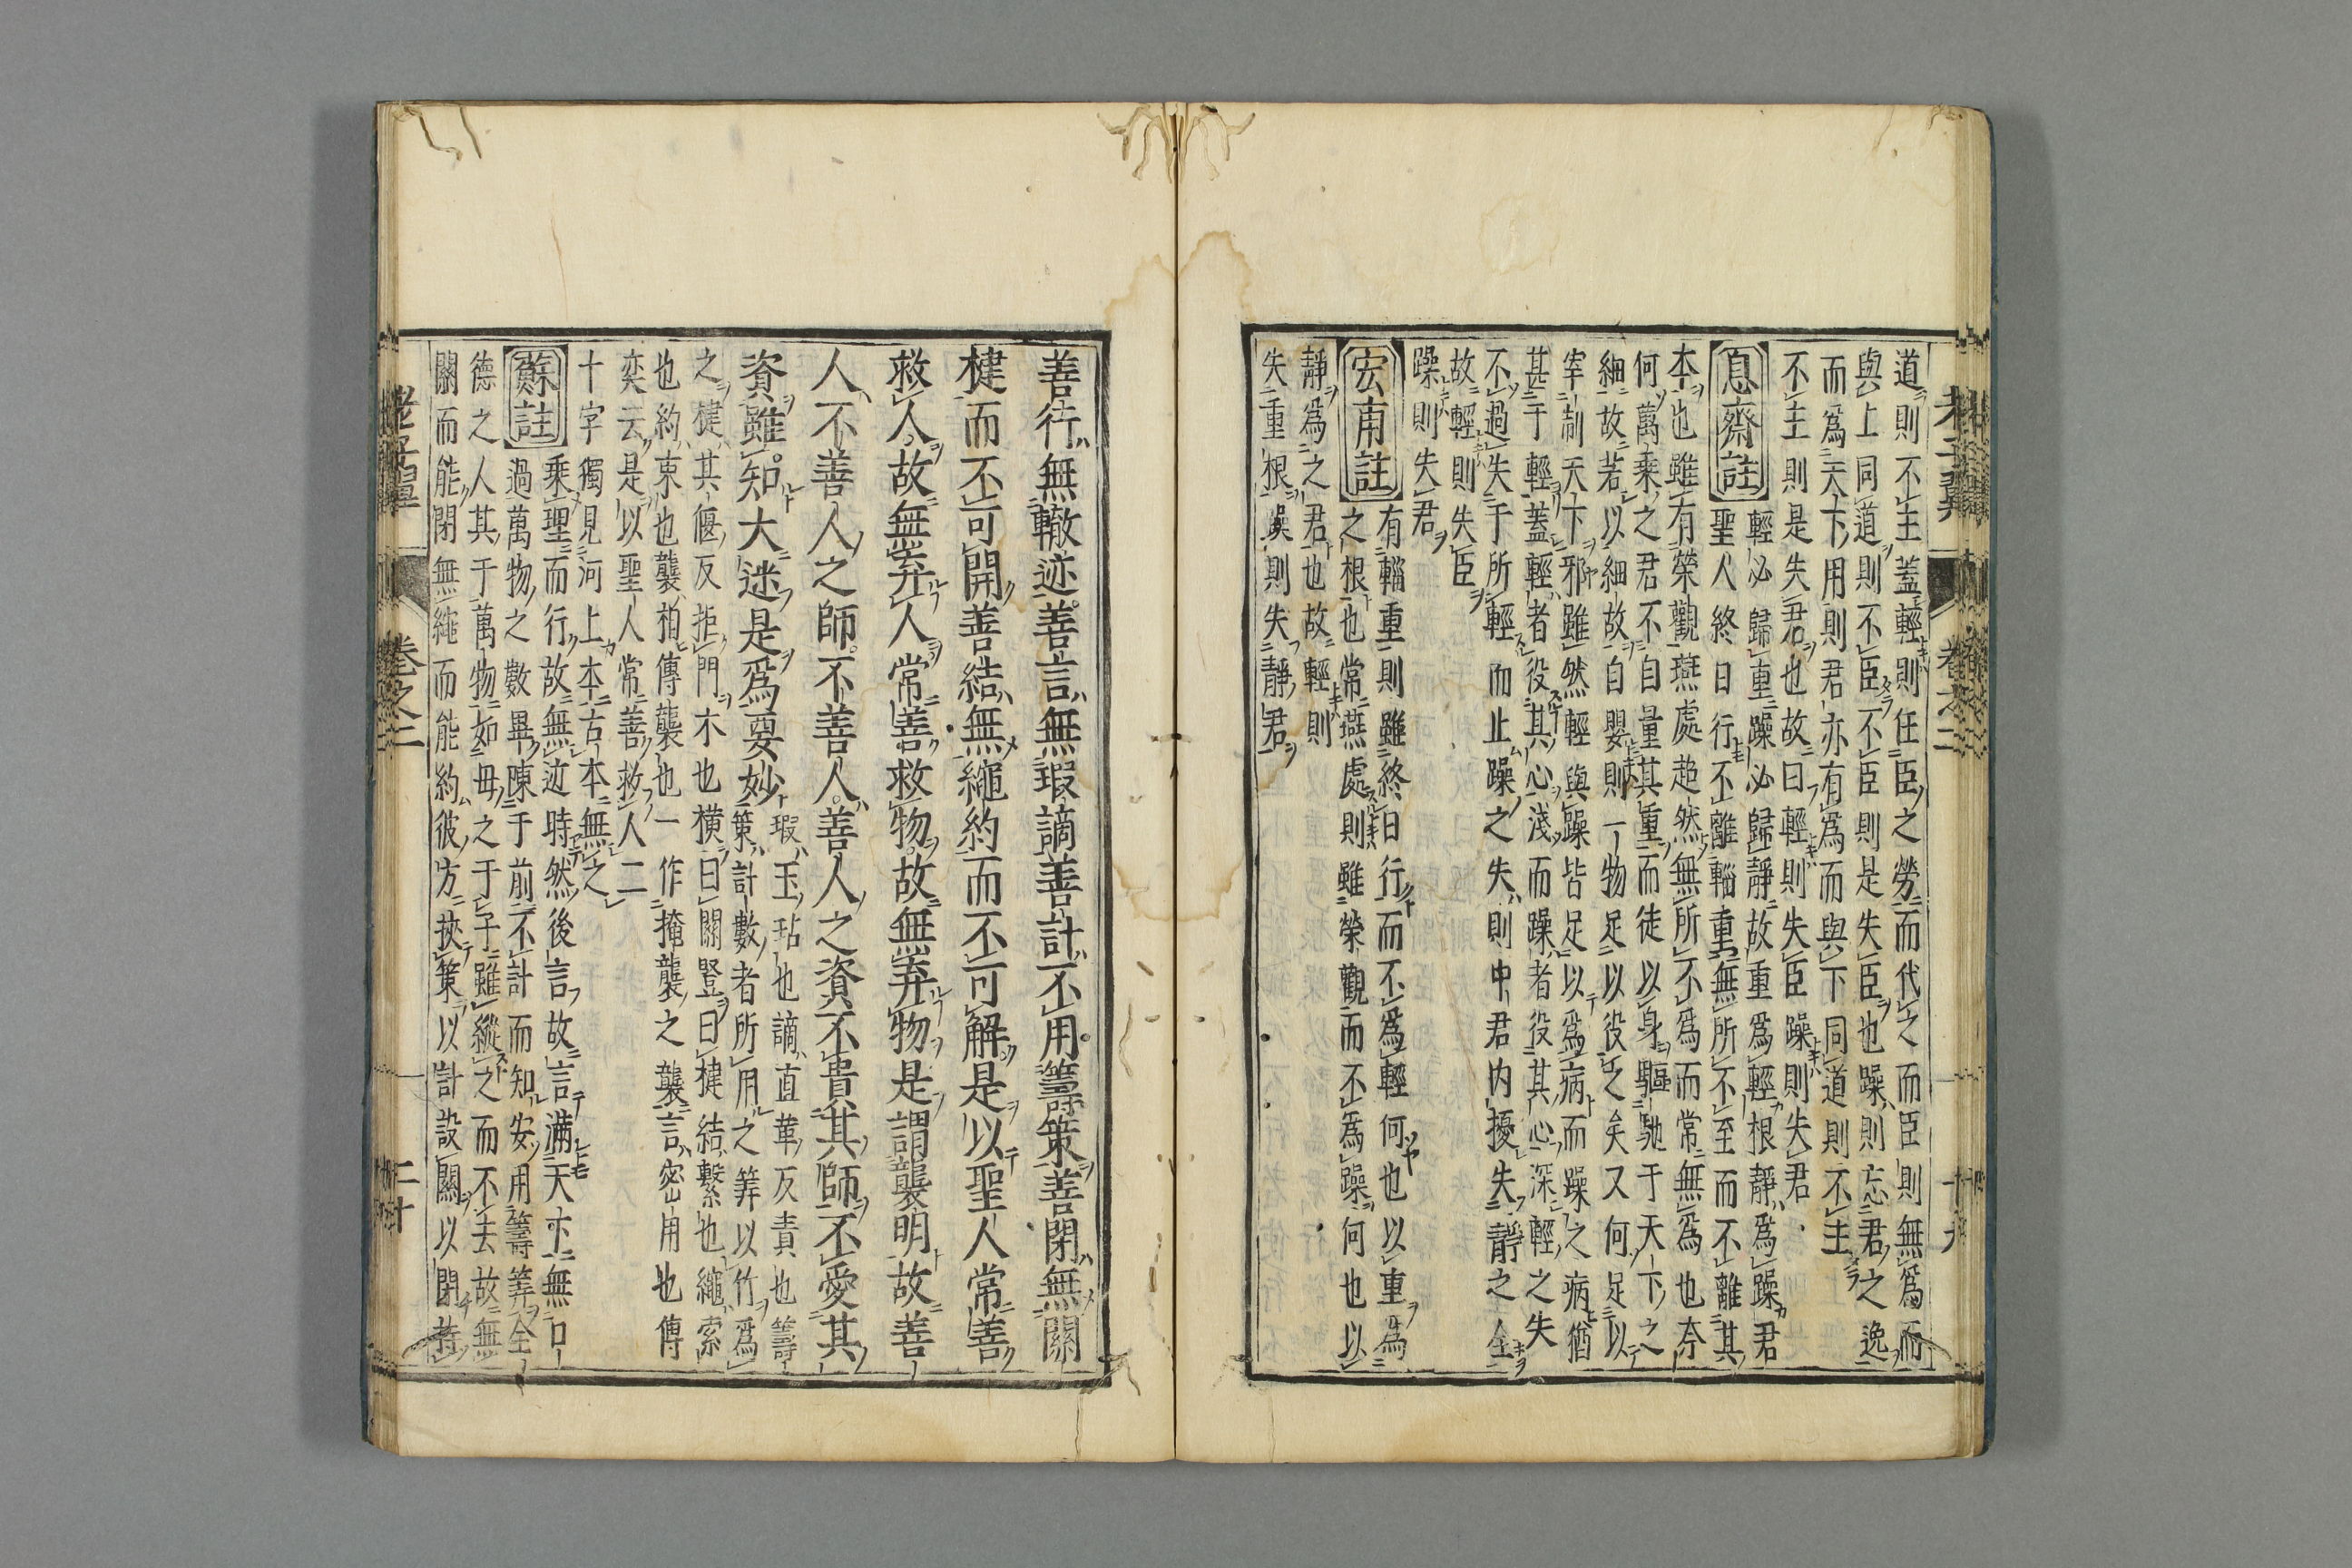 道則不主蓋輕則任臣之勞而代之而臣則無爲而
與上同道則不臣不臣則是失臣也躁則忘君之逸
而爲天下用則君亦有爲而與下同道則不主
不主則是失君也故曰輕則失臣躁則失君
息齋註
輕必歸重躁必歸靜故重爲輕根靜爲躁君
聖人終日行不離輜重無所不至而不離其
本也雖有榮觀燕處超然無所不爲而常無爲也奈
何萬乘之君不自量其重而徒以身驅馳于天下之
細故若以細故自嬰則一物足以役之矣又何足以
宰制天下邪雖然輕與躁皆足以爲病而躁之病猶
甚于輕蓋輕者役其心淺而躁者役其心深輕之失
不過失于所輕而止躁之失則中君内擾失靜之全
故輕則失臣
躁則失君
宏甫註
有輜重則雖終日行而不爲輕何也以重爲
之根也常燕處則雖榮觀而不爲躁何也以
靜爲之君也故輕則
失重根躁則失靜君
老子翼
卷之二
十九
善行無轍迹善言無瑕謫善計不用籌策善閉無關
楗而不可開善結無繩約而不可解是以聖人常善
救人故無弃人常善救物故無弃物是謂襲明故善
人不善人之師不善人善人之資不貴其師不愛其
資雖知大迷是爲要妙
瑕玉玷也謫直革反責也籌
策計數者所用之筭以竹爲
之楗其偃反拒門木也横曰關豎曰楗結繫也繩索
也約束也襲祖傳襲也一作掩襲之襲言密用也傅
奕云是以聖人常善救人二
十字獨見河上本古本無之
蘇註
乘理而行故無迹時然後言故言滿天下無口
過萬物之數畢陳于前不計而知安用籌筭全
德之人其于萬物如母之于子雖縱之而不去故無
關而能閉無繩而能約彼方挾策以計設關以閉持
老子翼
卷之二
二十